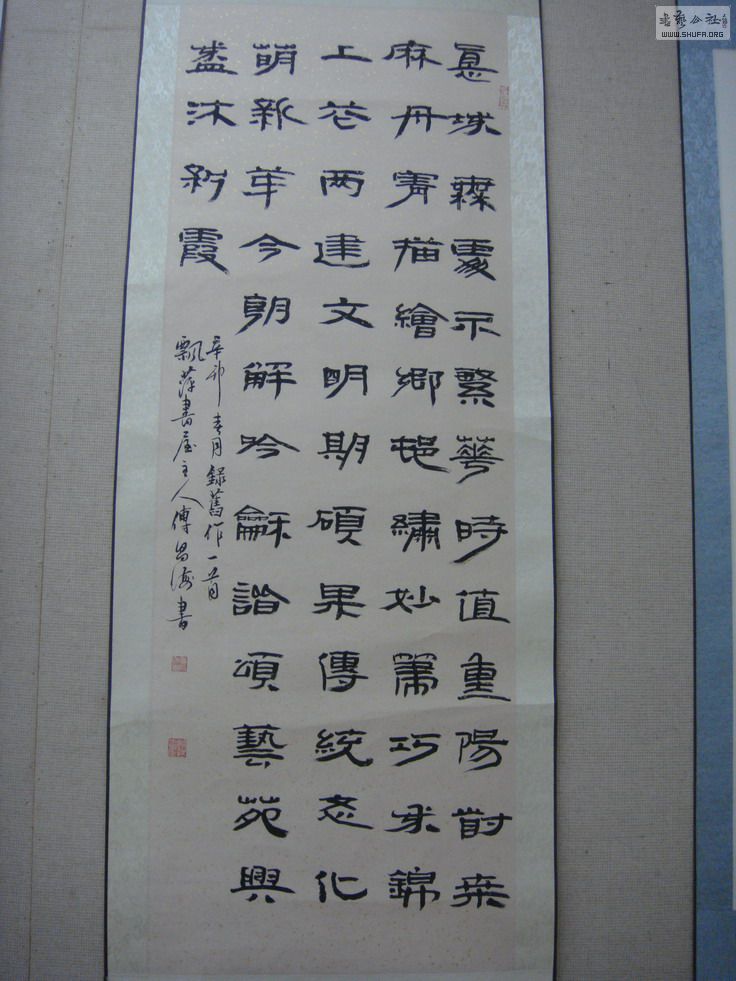 城無處不繁華時值重陽對桑
麻丹青描繪鄉邨繡妙筆巧來錦
上花两建文明期碩果傳統文化
萌新芽今朝解吟龢諧頌藝苑興
盛沐彩霞
辛卯春月錄舊作一首
飄萍書屋主人傅昌海書
書藝公社
WWW.SHUFA.ORG